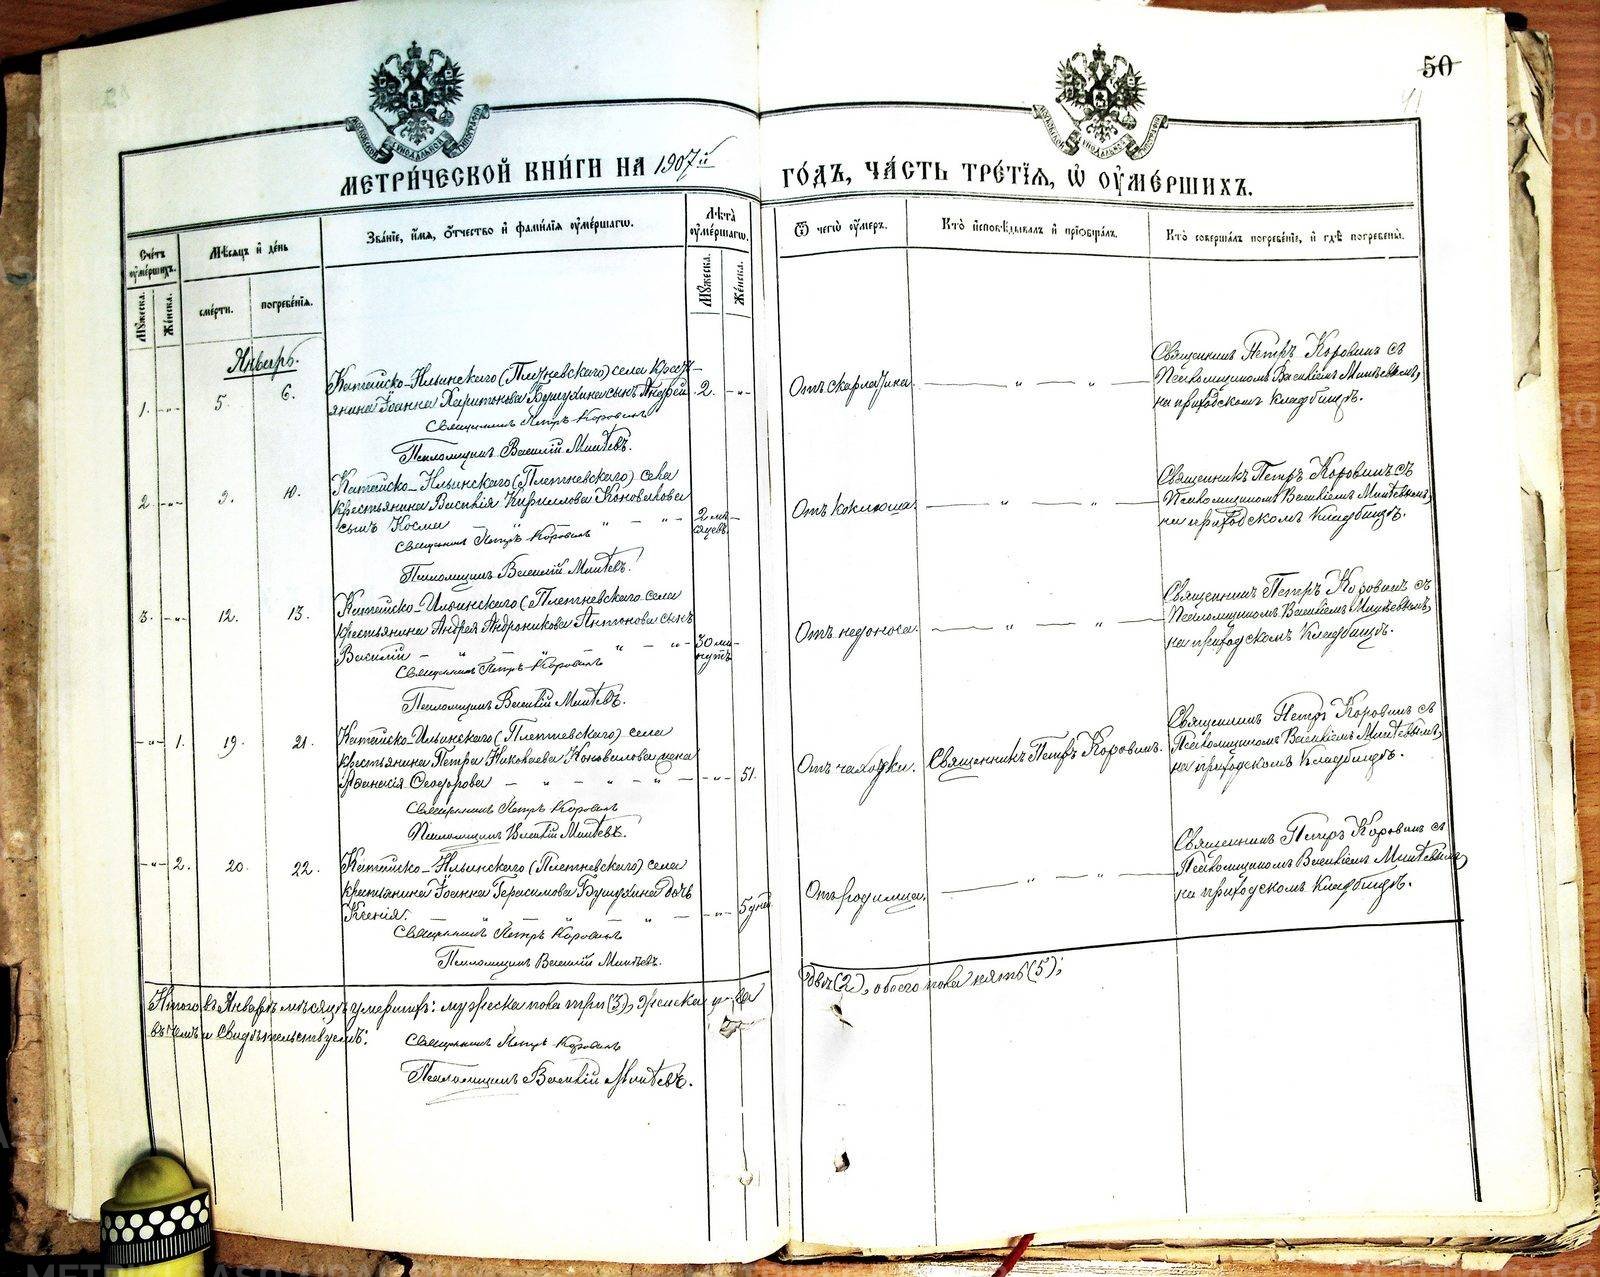 50
МОСКОВСКОЙ СѴНОДАЛЬНОЙ ТИПОГРАФІИ
МОСКОВСКОЙ СѴНОДАЛЬНОЙ ТИПОГРАФІИ
МЕТРИ́ЧЕСКОЙ КНИ́ГИ НА 1907й
ГО́ДЪ, ЧА́СТЬ ТРЕ́ТІѦ, Ѡ ОУМЕ́РШИХЪ.
Сче́тъ оуме́ршихъ.
Мꙋ́жеска.
Же́нска.
Мѣ́сѧцъ и де́нь
сме́рти.
погребе́нїѧ.
Зва́нїе, и́мѧ, о́тчество и фами́лїѧ оуме́ршагѡ.
Лѣ́та оуме́ршагѡ.
Мꙋ́жеска.
Же́нска.
Ѿ чегѡ̀ оу́меръ.
Кто̀ и҆сповѣ́дывалъ и҆ прїѡбща́лъ.
Кто̀ соверша́лъ погребе́нїе, и҆ гдѣ̀ погребены̀.
Январь.
1. -„- 5. 6.
Катайско-Ильинскаго (Плетневскаго) села кресть-
янина Іоанна Харитонова Бушухина сынъ Андрей
2. -„-
Священникъ Петръ Коровинъ
Псаломщикъ Василій Минѣевъ.
Отъ скарлатина. „ „
Священникъ Петръ Коровинъ съ
Псаломщикомъ Василіемъ Минѣевымъ,
на приходскомъ кладбищѣ.
2 -„- 9. 10.
Катайско-Ильинскаго (Плетневскаго) села
крестьянина Василія Кириллова Коновалова
сынъ Косма „ „ „
2 мѣ-
сяцевъ.
Священникъ Петръ Коровинъ
Псаломщикъ Василій Минѣевъ.
Отъ коклюша. „ „
Священникъ Петръ Коровинъ съ
Псаломщикомъ Василіемъ Минѣевымъ,
на приходскомъ кладбищѣ.
3. -„- 12. 13.
Катайско-Ильинскаго (Плетневскаго села
крестьянина Андрея Андроникова Антонова сынъ
Василій „ „ „ „
30 ми-
нутъ
Священникъ Петръ Коровинъ
Псаломщикъ Василій Минѣевъ.
Отъ недоноса. „ „
Священникъ Петръ Коровинъ съ
Псаломщикомъ Василіемъ Минѣевымъ,
на приходскомъ кладбищѣ.
-„- 1. 19. 21.
Катайско-Ильинскаго (Плетневскаго) села
крестьянина Петра Николаева Коновалова жена
Аѳанасія Ѳеодорова „ „ „ „
-„- 51.
Священникъ Петръ Коровинъ
Псаломщикъ Василій Минѣевъ.
Отъ чахотки.
Священникъ Петръ Коровинъ.
Священникъ Петръ Коровинъ съ
Псаломщикомъ Василіемъ Минѣевымъ,
на приходскомъ кладбищѣ.
-„- 2. 20. 22.
Катайско-Ильинскаго (Плетневскаго) села
крестьянина Іоанна Герасимова Бушухина дочь
Ксенія. „ „ „
-„- 5 дней
Священникъ Петръ Коровинъ
Псаломщикъ Василій Минѣевъ.
Отъ родимца. „ „
Священникъ Петръ Коровинъ съ
Псаломщикомъ Василіемъ Минѣевымъ,
на приходскомъ кладбищѣ.
Итого въ Январѣ мѣсяцѣ умершихъ: мужеска пола три (3), женска
двѣ (2), обоего пола пять (5);
въ чемъ и свидѣтельствуемъ:
Священникъ Петръ Коровинъ
Псаломщикъ Василій Минѣевъ.